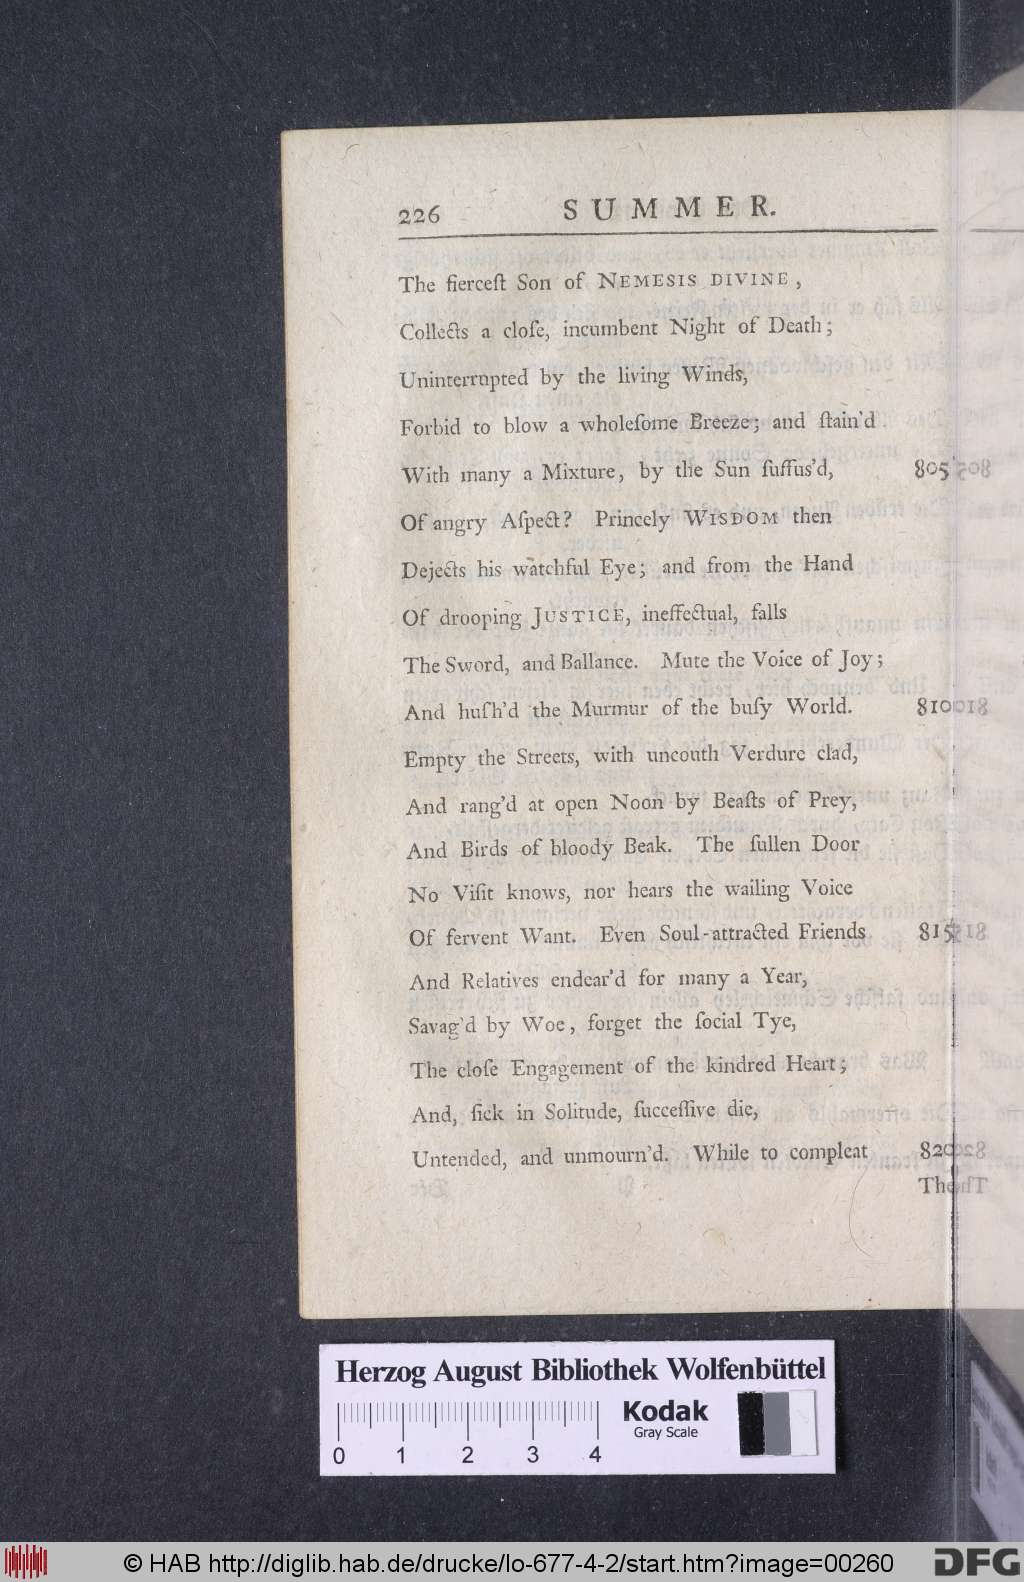 226 SUMMER.
The fierceſt Son of NEMESIS DIVINE,
Collects a cloſe, incumbent Night of Death;
Uninterrupted by the living Winds,
Forbid to blow a wholeſome Breeze; and ſtain'd
With many a Mixture, by the Sun ſuffus'd, 805
Of angry Aſpect? Princely WISDOM then
Dejects his watchful Eye; and from the Hand
Of drooping JUSTICE, ineffectual, falls
The Sword, and Ballance. Mute the Voice of Joy;
And huſh'd the Murmur of the buſy World. 810
Empty the Streets, with uncouth Verdure clad,
And rang'd at open Noon by Beaſts of Prey,
And Birds of bloody Beak. The ſullen Door
No Viſit knows, nor hears the wailing Voice
Of fervent Want. Even Soul-attracted Friends 815
And Relatives endear'd for many a Year,
Savag'd by Woe, forget the ſocial Tye,
The cloſe Engagement of the kindred Heart;
And, ſick in Solitude, ſucceſſive die,
Untended, and unmourn'd. While to compleat 820
The
Herzog August Bibliothek Wolfenbüttel
Kodak
Gray Scale
0 1 2 3 4
© HAB http://diglib.hab.de/drucke/lo-677-4-2/start.htm?image=00260
DFG